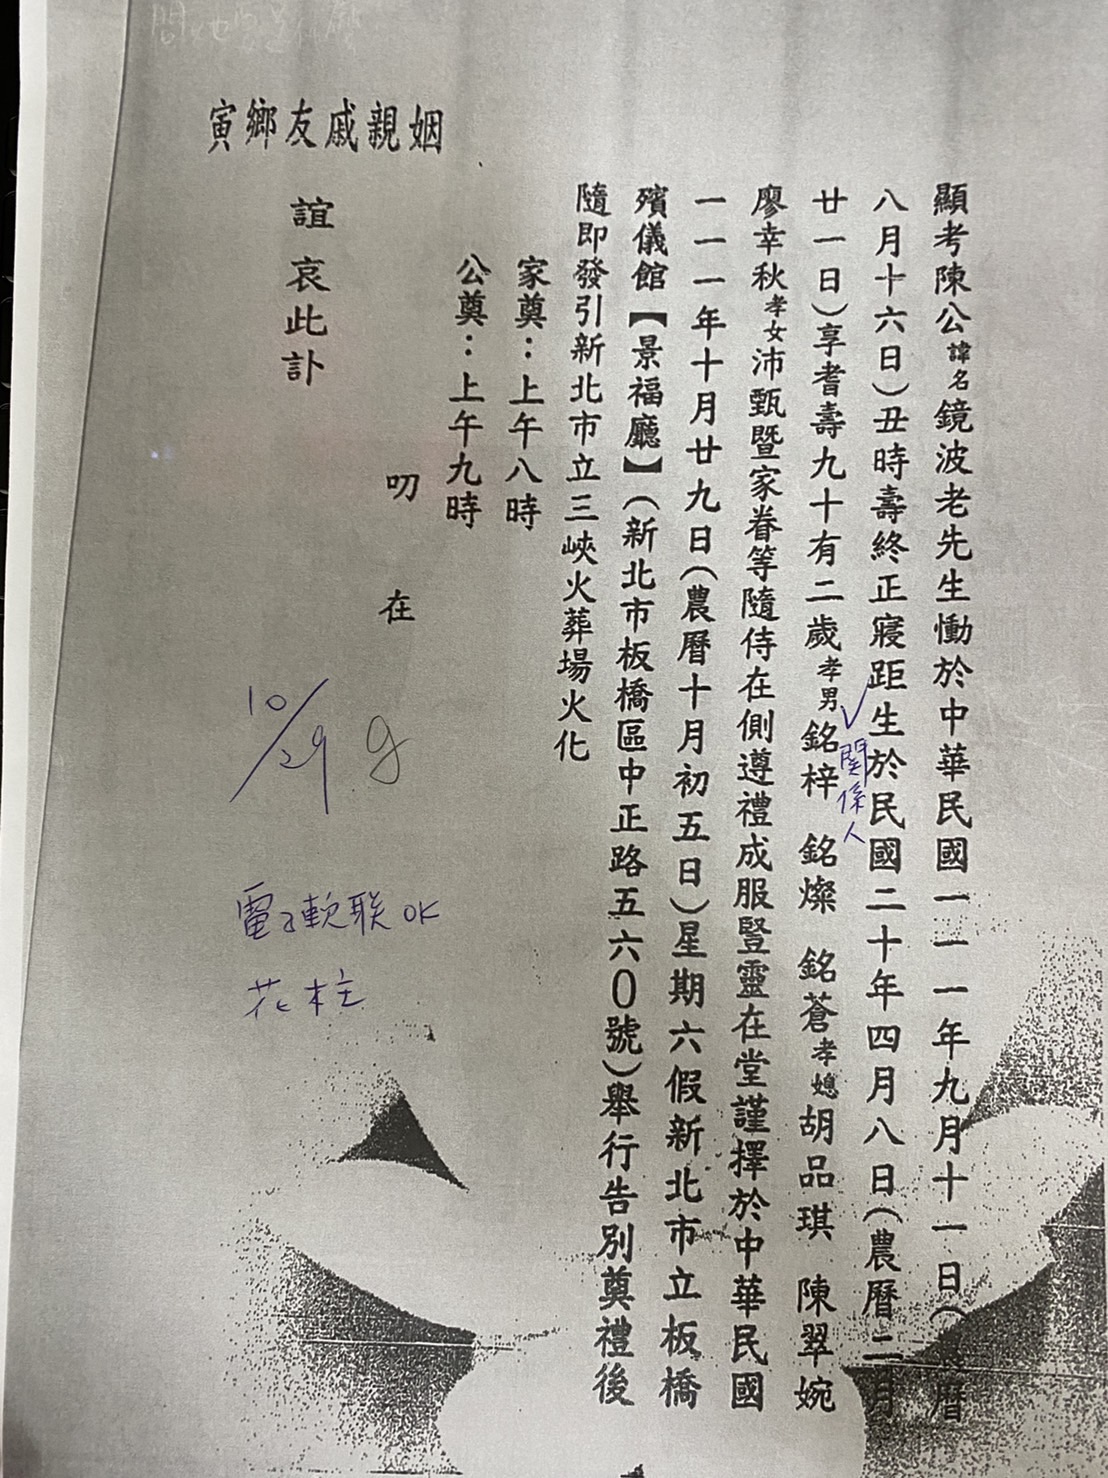 顯考陳公諱名鏡波老先生慟於中華民國一一一年九月十一日(農曆
八月十六日)丑時壽終正寢距生於民國二十年四月八日(農曆二月
廿一日)享耆壽九十有二歲孝男銘梓 銘燦 銘蒼孝媳胡品琪 陳翠婉
廖幸秋孝女沛甄暨家眷等隨侍在側遵禮成服豎靈在堂謹擇於中華民國
一一一年十月廿九日(農曆十月初五日)星期六假新北市立板橋
殯儀館【景福廳】(新北市板橋區中正路五六0號)舉行告別奠禮後
隨即發引新北市立三峽火葬場火化
家奠:上午八時
公奠:上午九時
叨 在
姻親戚友鄉寅
誼哀此訃
✓關係人
10/29 9
電子輓联OK
花柱